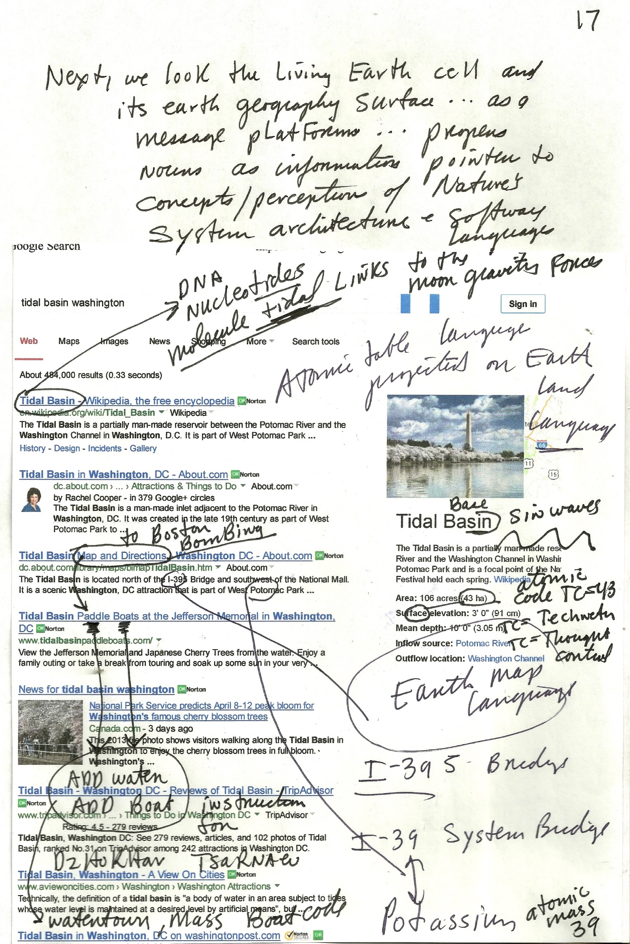 17
Next, we look the Living Earth cell and
its earth geography surface ... as a
message platforms ... propens
nouns as information pointen to
concepts/perception of Nature's
System architecture - Softway
Languages
Google Search
DNA
Nucleotides
molecule tidal Links to the
moon gravity Forces
tidal basin washington
Sign in
Web Maps Images News Shopping More Search tools
Atomic table language
projected on Earth
Land
Language
About 484,000 results (0.33 seconds)
Tidal Basin - Wikipedia, the free encyclopedia Norton
en.wikipedia.org/wiki/Tidal_Basin Wikipedia
The Tidal Basin is a partially man-made reservoir between the Potomac River and the
Washington Channel in Washington, D.C. It is part of West Potomac Park ...
History - Design - Incidents - Gallery
Tidal Basin in Washington, DC - About.com Norton
dc.about.com › ... › Attractions & Things to Do About.com
by Rachel Cooper - in 379 Google+ circles
The Tidal Basin is a man-made inlet adjacent to the Potomac River in
Washington, DC. It was created in the late 19th century as part of West
Potomac Park to ...
to Boston
Bombing
Base
Tidal Basin
Sin waves
Tidal Basin Map and Directions, Washington DC - About.com Norton
dc.about.com/library/maps/blmapTidalBasin.htm About.com
The Tidal Basin is located north of the I-395 Bridge and southwest of the National Mall.
It is a scenic Washington, DC attraction that is part of West Potomac Park, ...
The Tidal Basin is a partially man-made rese
River and the Washington Channel in Washi
Potomac Park and is a focal point of the Na
Festival held each spring. Wikipedia
Area: 106 acres (43 ha)
Surface elevation: 3' 0" (91 cm)
Mean depth: 10' 0" (3.05 m)
Inflow source: Potomac River
Outflow location: Washington Channel
atomic
code TC=43
TC = Techneten
TC = Thought
control
Tidal Basin Paddle Boats at the Jefferson Memorial in Washington,
DC Norton
www.tidalbasinpaddleboats.com/
View the Jefferson Memorial and Japanese Cherry Trees from the water. Enjoy a
family outing or take a break from touring and soak up some sun in your very ...
Earth map
Language
News for tidal basin washington
National Park Service predicts April 8-12 peak bloom for
Washington's famous cherry blossom trees
Canada.com - 3 days ago
This 2013 file photo shows visitors walking along the Tidal Basin in
Washington to enjoy the cherry blossom trees in full bloom.
Washington's ...
I-395 Bridge
ADD water
ADD Boat instruction
for
Tidal Basin - Washington DC - Reviews of Tidal Basin - TripAdvisor
Norton
www.tripadvisor.com › ... › Things to Do in Washington DC TripAdvisor
Rating: 4.5 - 279 reviews
Tidal Basin, Washington DC: See 279 reviews, articles, and 102 photos of Tidal
Basin, ranked No.31 on TripAdvisor among 242 attractions in Washington DC.
I-39 System Bridge
Dzhokhar Tsarnaev
Tidal Basin, Washington - A View On Cities Norton
www.aviewoncities.com › Washington › Washington Attractions
Technically, the definition of a tidal basin is "a body of water in an area subject to tides
whose water level is maintained at a desired level by artificial means", but ...
watertown, Mass Boat code
Potassium atomic
mass
39
Tidal Basin in Washington, DC on washingtonpost.com Norton